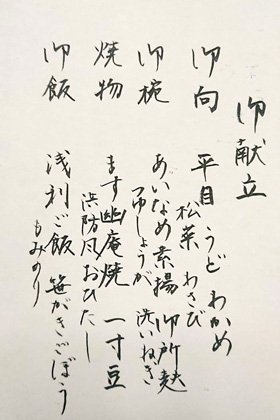 御献立
御向 平目 うど わかめ
松菜 わさび
御椀 あいなめ素揚 御所麩
つゆしょうが 洗いねぎ
焼物 ます幽庵焼 一寸豆
浜防風おひたし
御飯 浅利ご飯 笹がきごぼう
もみのり